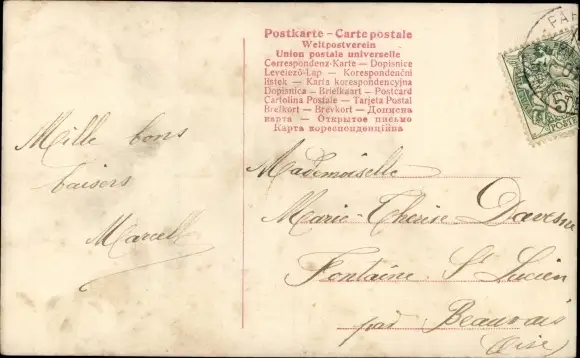 Postkarte – Carte postale
Weltpostverein
Union postale universelle
Correspondenz-Karte — Dopisnice
Levelező-Lap — Korespondenční
listek — Karta korespondencyjna
Dopisnica — Briefkaart — Postcard
Cartolina Postale — Tarjeta Postal
Brefkort — Brevkort — Дописна
карта — Открытое письмо
Карта кореспонденційна
PAR
52
POSTE
Mille bons
baisers
Marcel
Mademoiselle
Marie-Thérèse Davesne
Fontaine St Lucien
par Beauvais
(Oise)